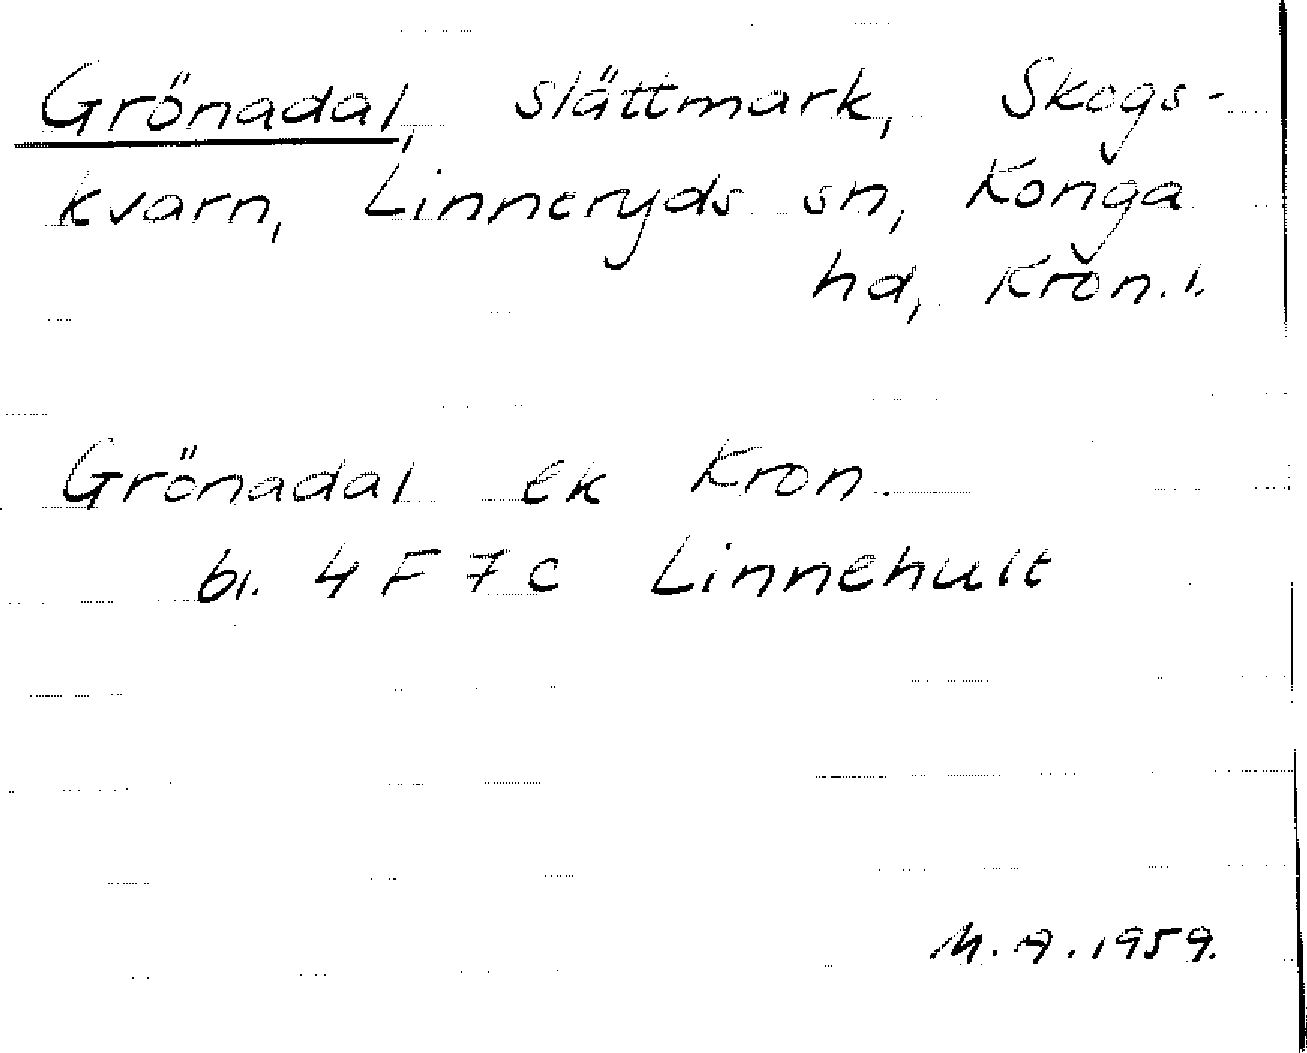 Grönadal, slättmark, Skogs-
kvarn, Linneryds sn, Konga
hd, Kron.l.
Grönadal ek Kron.
bl. 4 F 7 c Linnehult
M.A.1959.